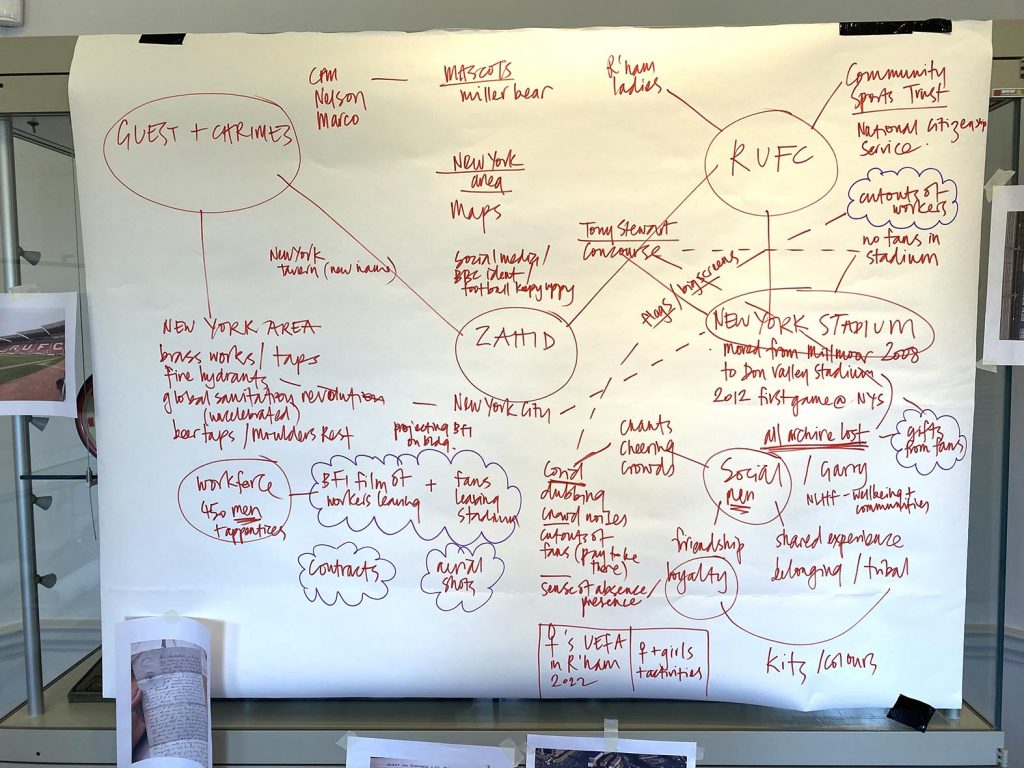 GUEST + CHRIMES
CPM
Nelson
Marco
MASCOTS
miller bear
R'ham
ladies
Community
Sports Trust
National Citizenship
Service
RUFC
New York
area
maps
cutouts of
workers
no fans in
stadium
Tony Stewart
Concourse
flags / big screens
New York
tavern (new name)
Social media /
BBC ident /
football keepy uppy
ZAHID
NEW YORK STADIUM
moved from Millmoor 2008
to Don Valley Stadium
2012 first game @ NYS
all archive lost
gifts
from fans
NEW YORK AREA
brass works / taps
fire hydrants
global sanitation revolution
(uncelebrated)
beer taps / Moulders Rest
New York City
projecting BFI
on bldg.
workforce
450 men
+ apprentices
BFI film of
workers leaving
+
fans
leaving
stadium
contracts
aerial
shots
chants
cheering
crowds
Covid
dubbing
crowd noises
cutouts of
fans (pay to be
there)
sense of absence /
presence
Social
men
/ Garry
NLHF - wellbeing +
communities
friendship
loyalty
shared experience
belonging / tribal
kits / colours
♀'s UEFA
in R'ham
2022
♀ + girls
+ activities
RUFC